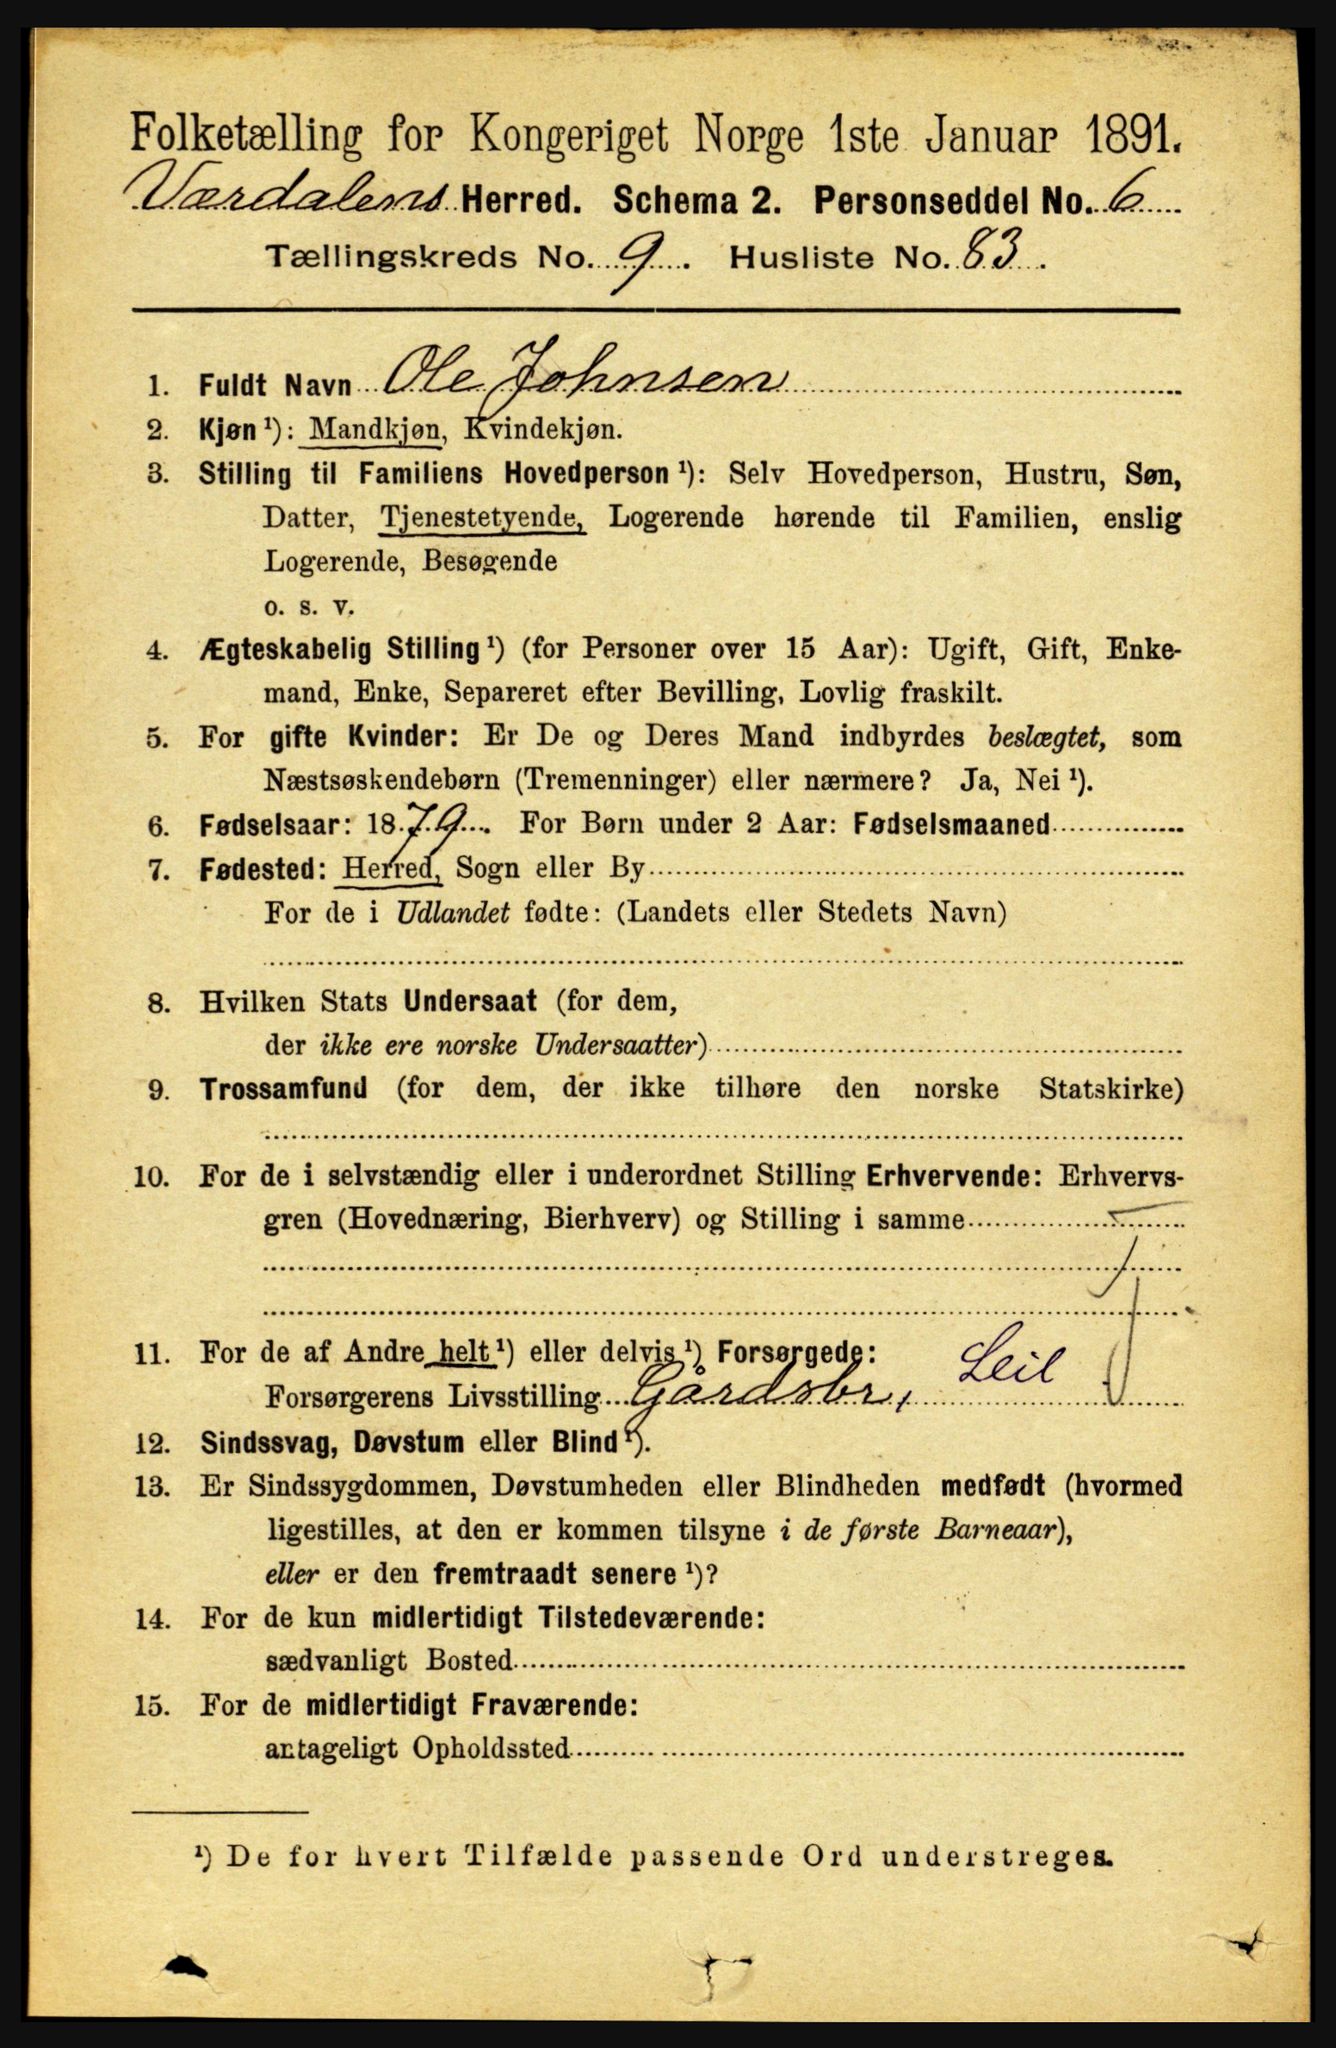 Folketælling for Kongeriget Norge 1ste Januar 1891.
Værdalens Herred. Schema 2. Personseddel No. 6
Tællingskreds No. 9. Husliste No. 83.
1. Fuldt Navn Ole Johnsen
2. Kjøn ¹): Mandkjøn, Kvindekjøn.
3. Stilling til Familiens Hovedperson ¹): Selv Hovedperson, Hustru, Søn,
Datter, Tjenestetyende, Logerende hørende til Familien, enslig
Logerende, Besøgende
o. s. v.
4. Ægteskabelig Stilling ¹) (for Personer over 15 Aar): Ugift, Gift, Enke-
mand, Enke, Separeret efter Bevilling, Lovlig fraskilt.
5. For gifte Kvinder: Er De og Deres Mand indbyrdes beslægtet, som
Næstsøskendebørn (Tremenninger) eller nærmere? Ja, Nei ¹).
6. Fødselsaar: 1879. For Børn under 2 Aar: Fødselsmaaned
7. Fødested: Herred, Sogn eller By
For de i Udlandet fødte: (Landets eller Stedets Navn)
8. Hvilken Stats Undersaat (for dem,
der ikke ere norske Undersaatter)
9. Trossamfund (for dem, der ikke tilhøre den norske Statskirke)
10. For de i selvstændig eller i underordnet Stilling Erhvervende: Erhvervs-
gren (Hovednæring, Bierhverv) og Stilling i samme
11. For de af Andre helt ¹) eller delvis ¹) Forsørgede:
Leil
Forsørgerens Livsstilling Gårdsbr,
12. Sindssvag, Døvstum eller Blind ¹).
13. Er Sindssygdommen, Døvstumheden eller Blindheden medfødt (hvormed
ligestilles, at den er kommen tilsyne i de første Barneaar),
eller er den fremtraadt senere ¹)?
14. For de kun midlertidigt Tilstedeværende:
sædvanligt Bosted
15. For de midlertidigt Fraværende:
antageligt Opholdssted
¹) De for hvert Tilfælde passende Ord understreges.